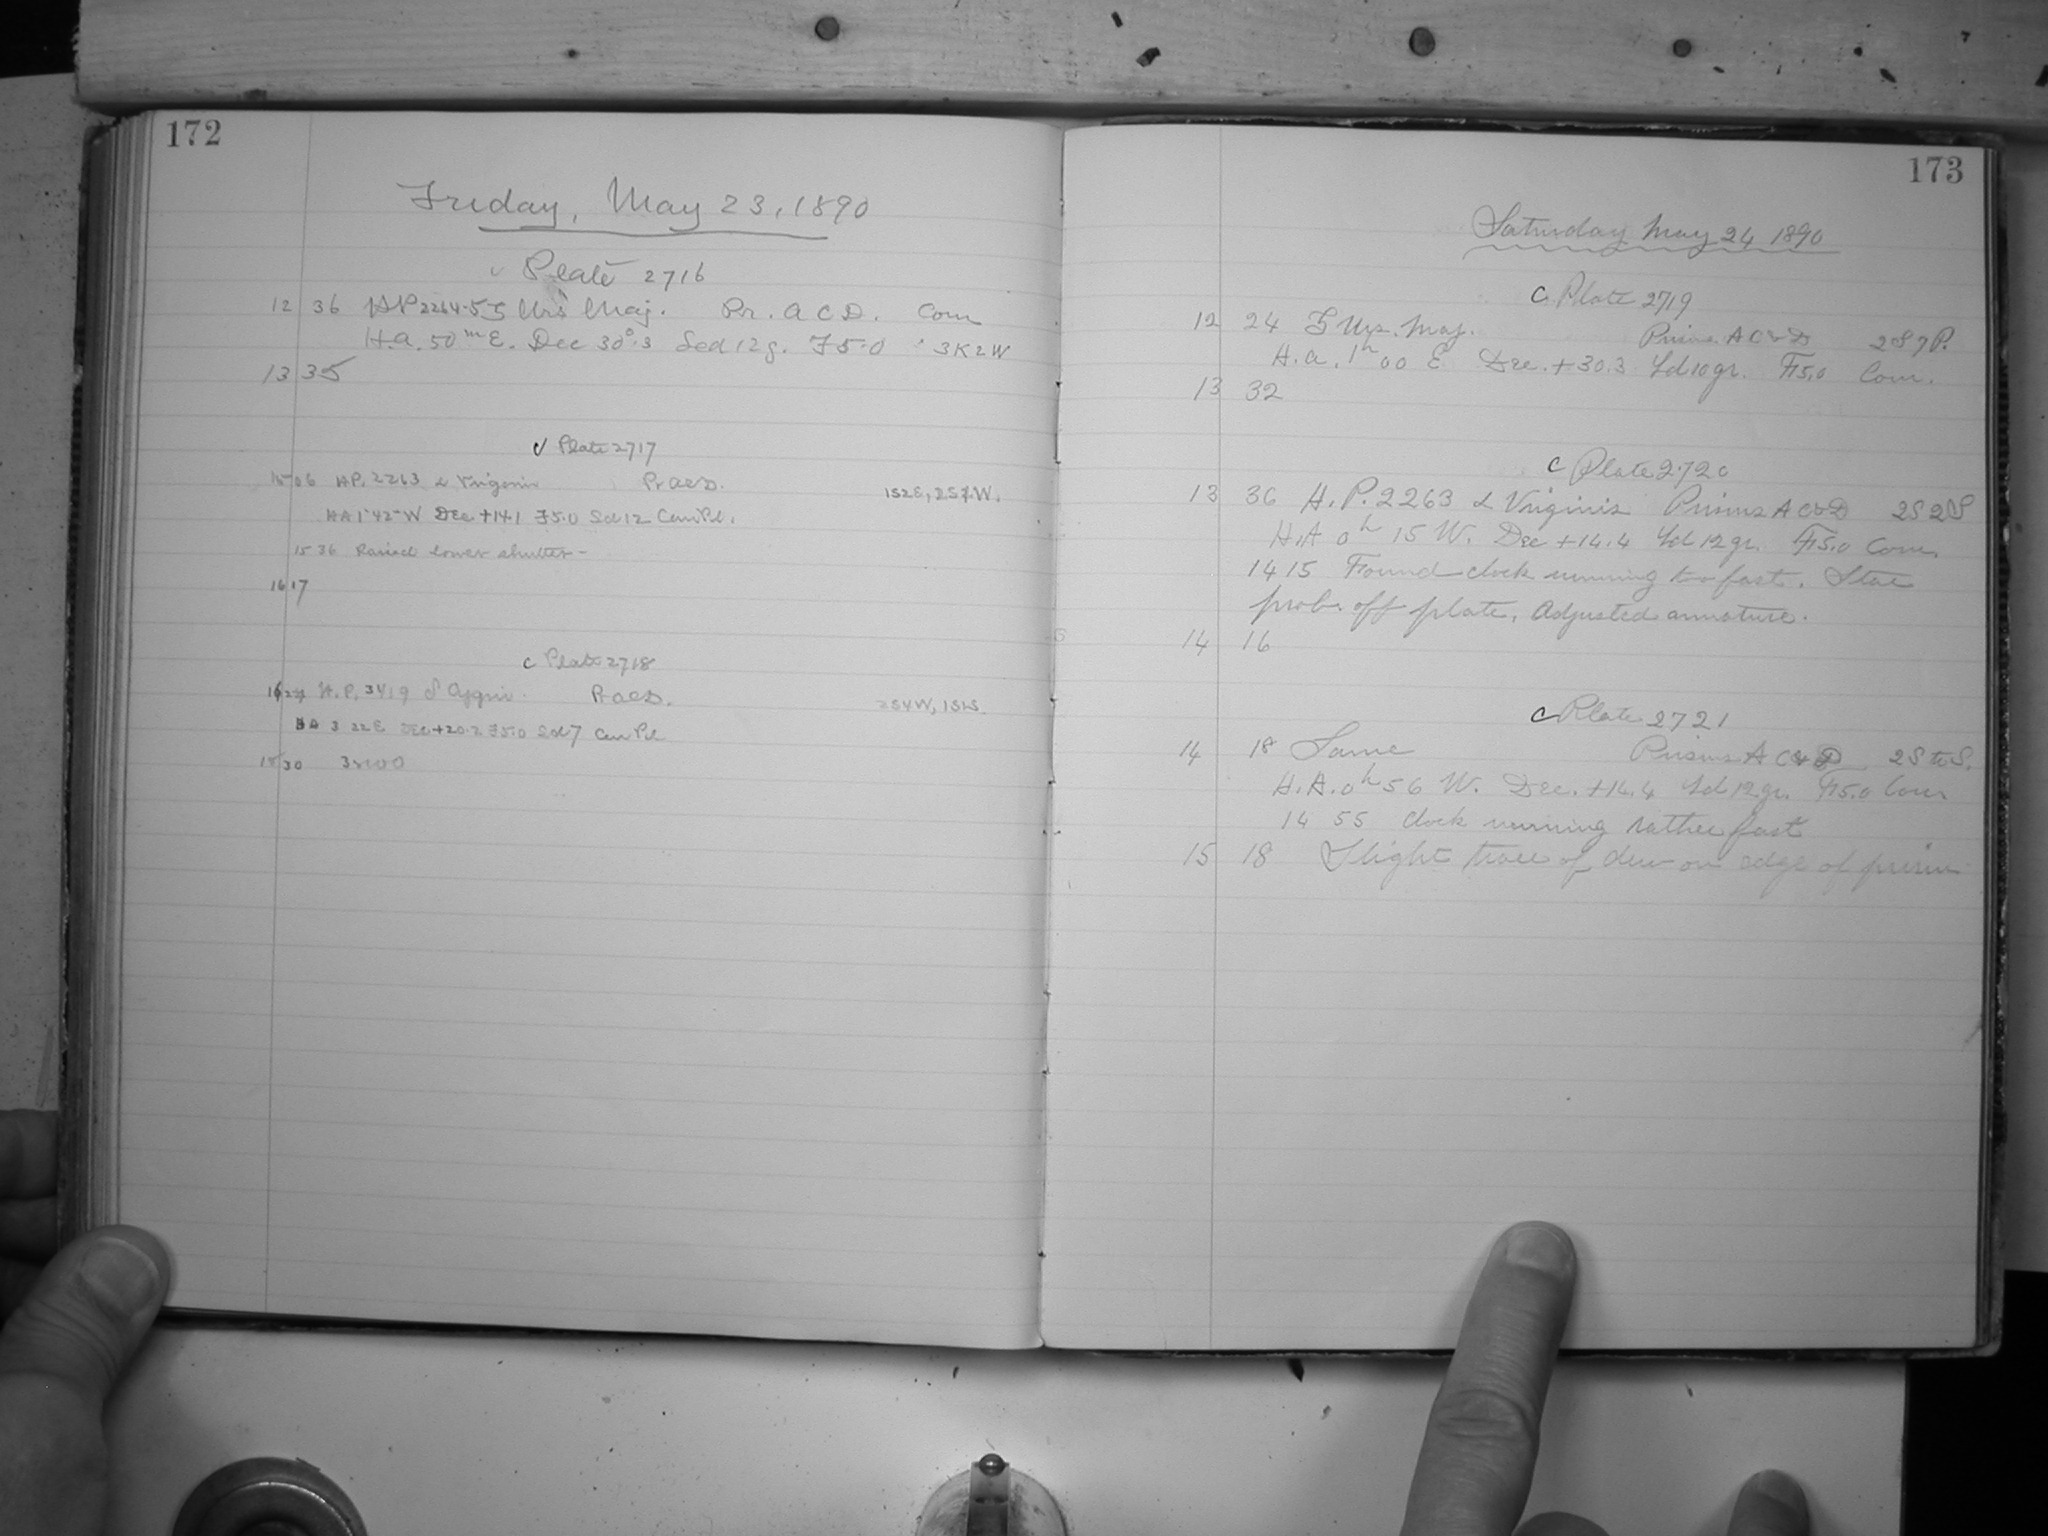 172
Friday, May 23, 1890
Plate 2716
12 36 HP 2264-5 ξ Urs Maj. Pr. A C D. Com
H.a. 50 m E. Dec 30°.3 Sed 12 g. F 5.0 3K2W
13 35
Plate 2717
15 06 HP. 2263 α Virginis Pr ACD. 1S2E, 2S W.
HA 1 42 W Dec +14.1 F5.0 Sed 12 Com Pl.
15 36 Raised lower shutter -
16 17
c Plate 2718
16 H.P. 3419 δ Pr ACD. 2S4W,
HA 3 22 E Dec +20.2 F5.0 Sed 7 Com Pl
30
173
Saturday May 24 1890
c Plate 2719
12 24 ξ Urs. Maj. Prisms A C & D 2S7P.
H.a. 1h 00 E Dec. +30.3 Sd 10 gr. F15.0 Com.
13 32
c Plate 2720
13 36 H.P. 2263 α Virginis Prisms A C & D 2S2S
H.A 0h 15 W. Dec +14.4 Sd 12 gr. F15.0 Com.
14 15 Found clock running too fast. Star
prob. off plate. Adjusted armature.
14 16
c Plate 2721
14 18 Same Prisms A C & D 2S S.
H.A. 0h 56 W. Dec. +14.4 Sd 12 gr. F15.0 Com
14 55 clock running rather fast
15 18 Slight trace of dew on edge of prism